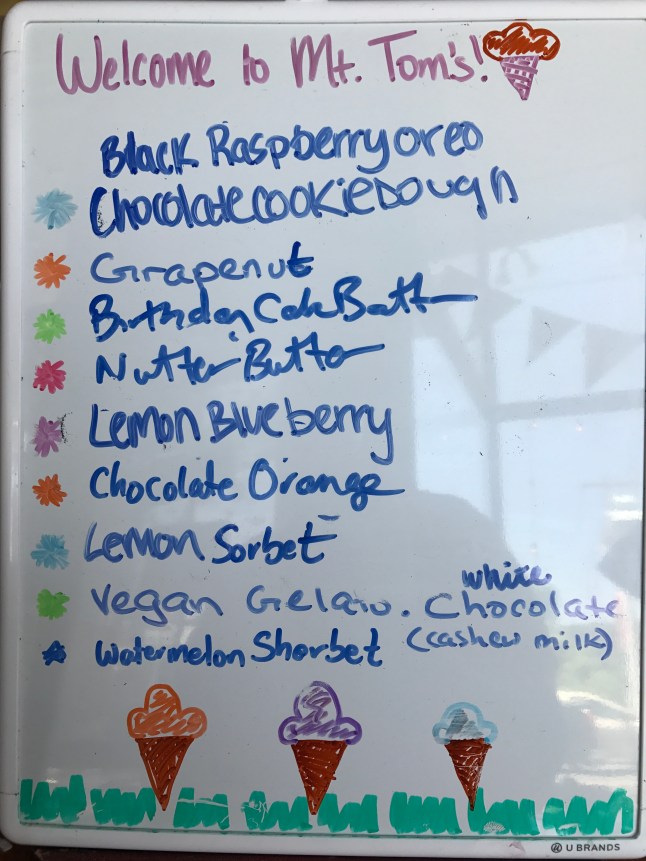 Welcome to Mt. Tom's!
Black Raspberry oreo
Chocolate cookie Dough
Grapenut
Birthday Cake Batter
Nutter Butter
Lemon Blueberry
Chocolate Orange
Lemon Sorbet
Vegan Gelato. white Chocolate
(cashew milk)
Watermelon Shorbet
U BRANDS